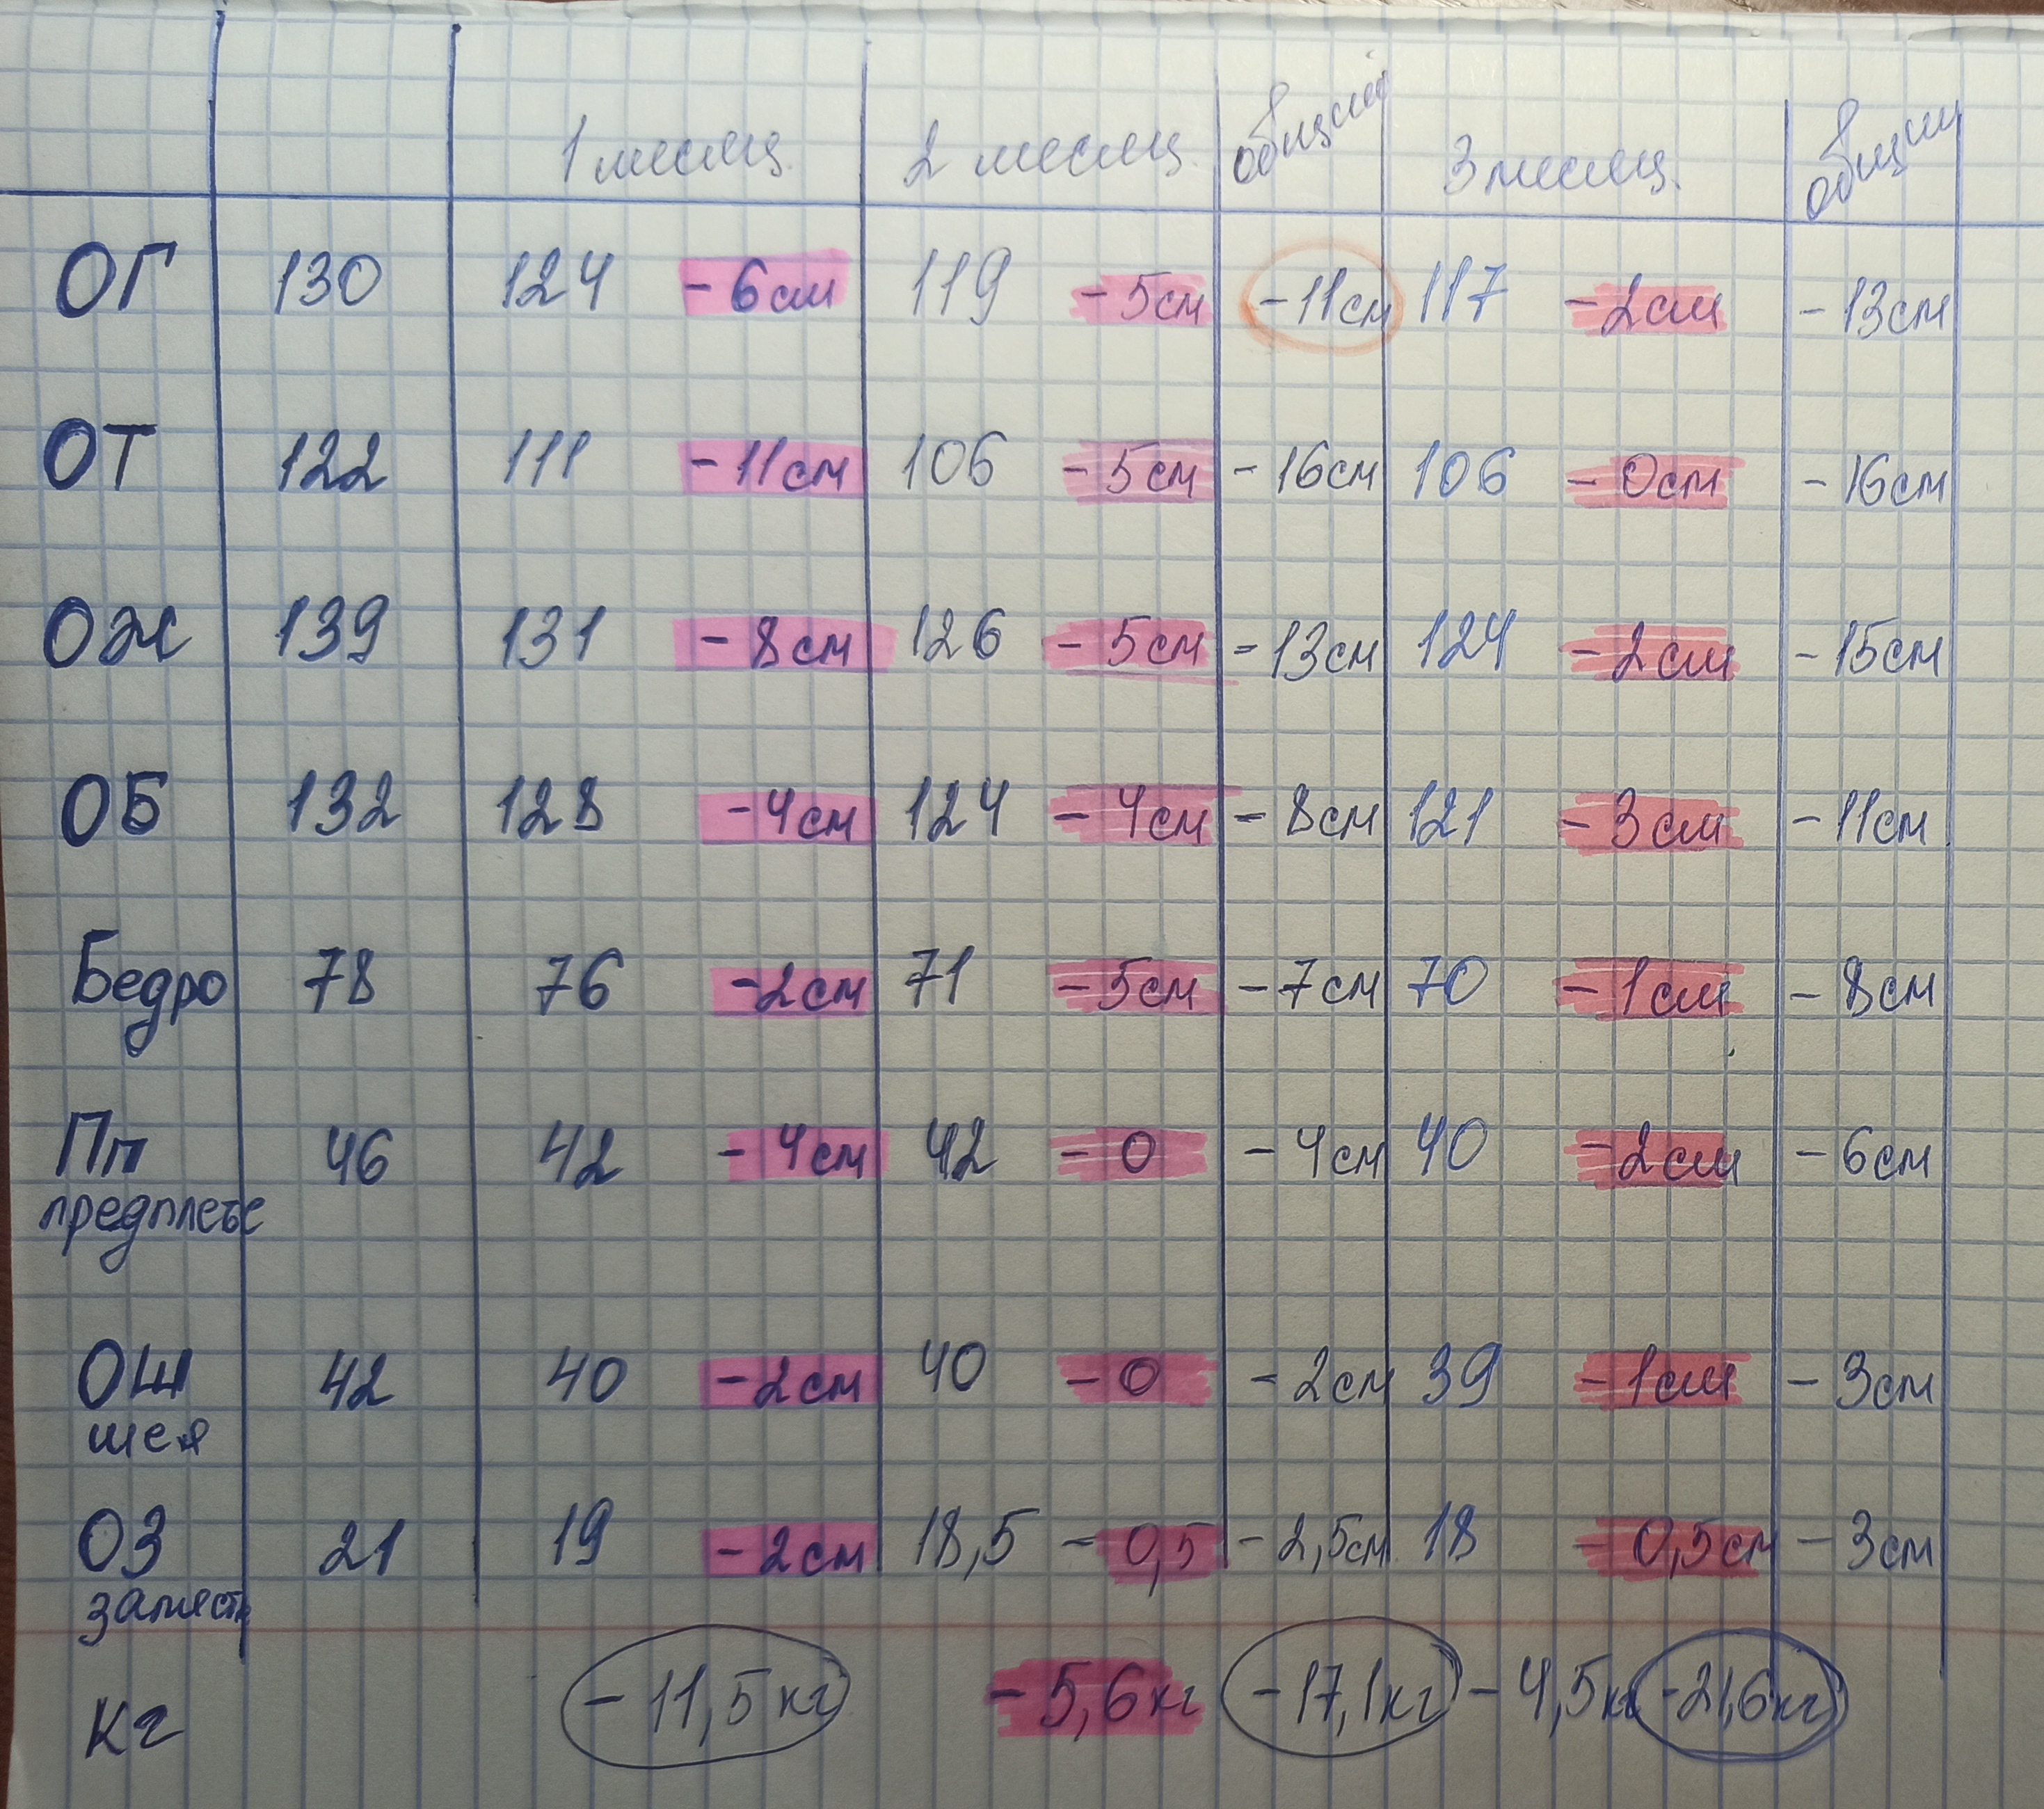 1 месяц. 2 месяц. общий 3 месяц. общий
ОГ 130 124 -6см 119 -5см -11см 117 -2см -13см
ОТ 122 111 -11см 106 -5см -16см 106 -0см -16см
ОЖ 139 131 -8см 126 -5см -13см 124 -2см -15см
ОБ 132 128 -4см 124 -4см -8см 121 -3см -11см
Бедро 78 76 -2см 71 -5см -7см 70 -1см -8см
Пп 46 42 -4см 42 -0 -4см 40 -2см -6см
предплечье
ОШ 42 40 -2см 40 -0 -2см 39 -1см -3см
шея
ОЗ 21 19 -2см 18,5 -0,5 -2,5см 18 -0,5см -3см
кг -11,5кг -5,6кг -17,1кг -4,5кг -21,6кг